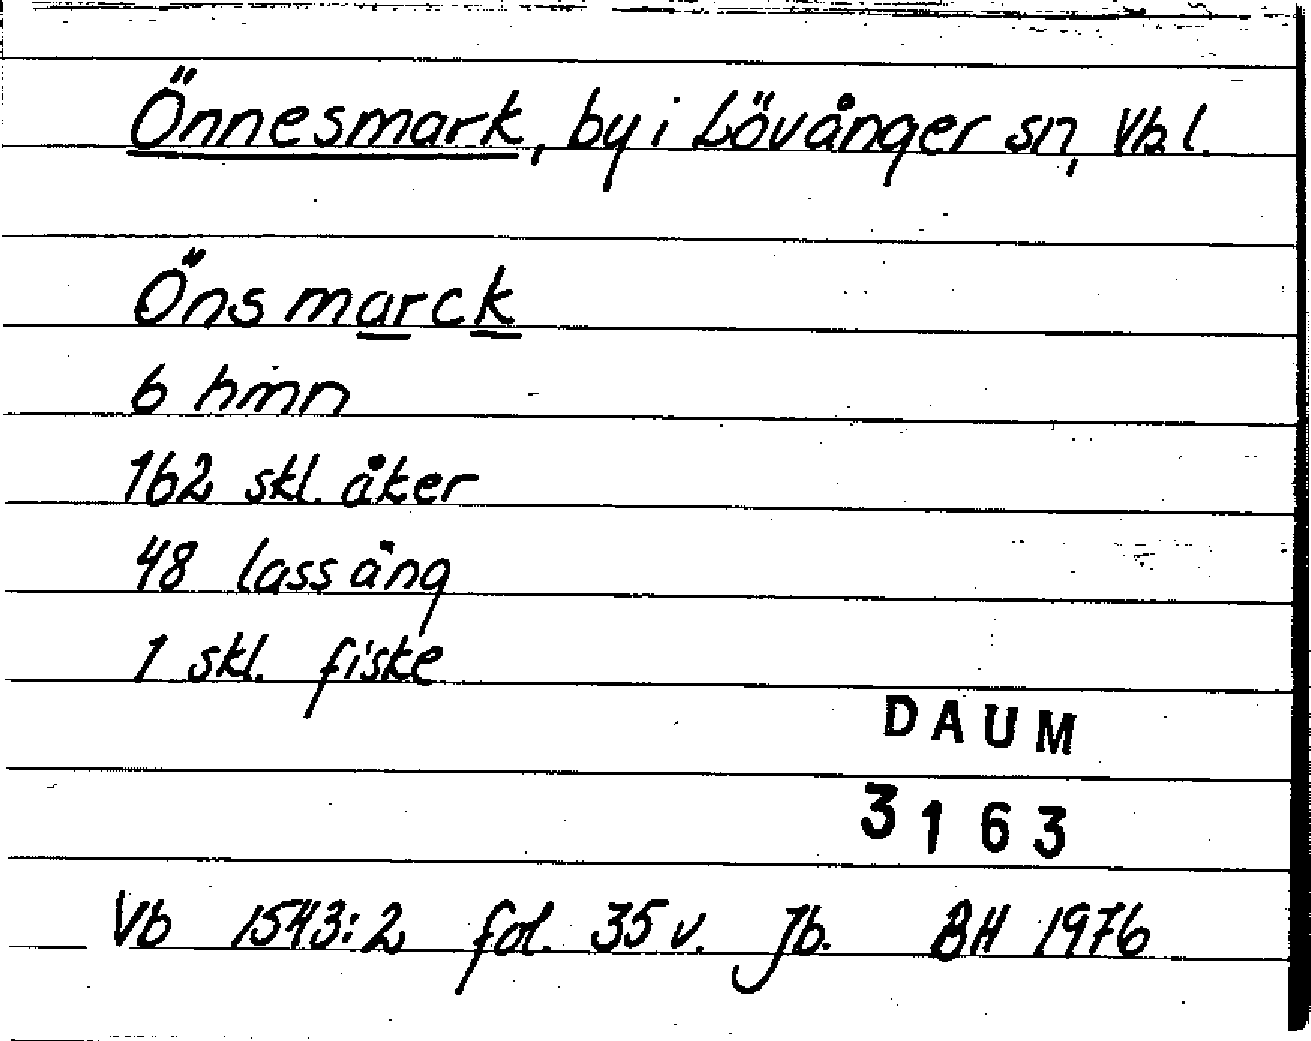 Önnesmark, by i Lövånger sn, Vb l.
Önsmarck
6 hmn
162 skl. åker
48 lass äng
1 skl. fiske
DAUM
3163
Vb 1543:2 fol. 35 v. Jb. BH 1976